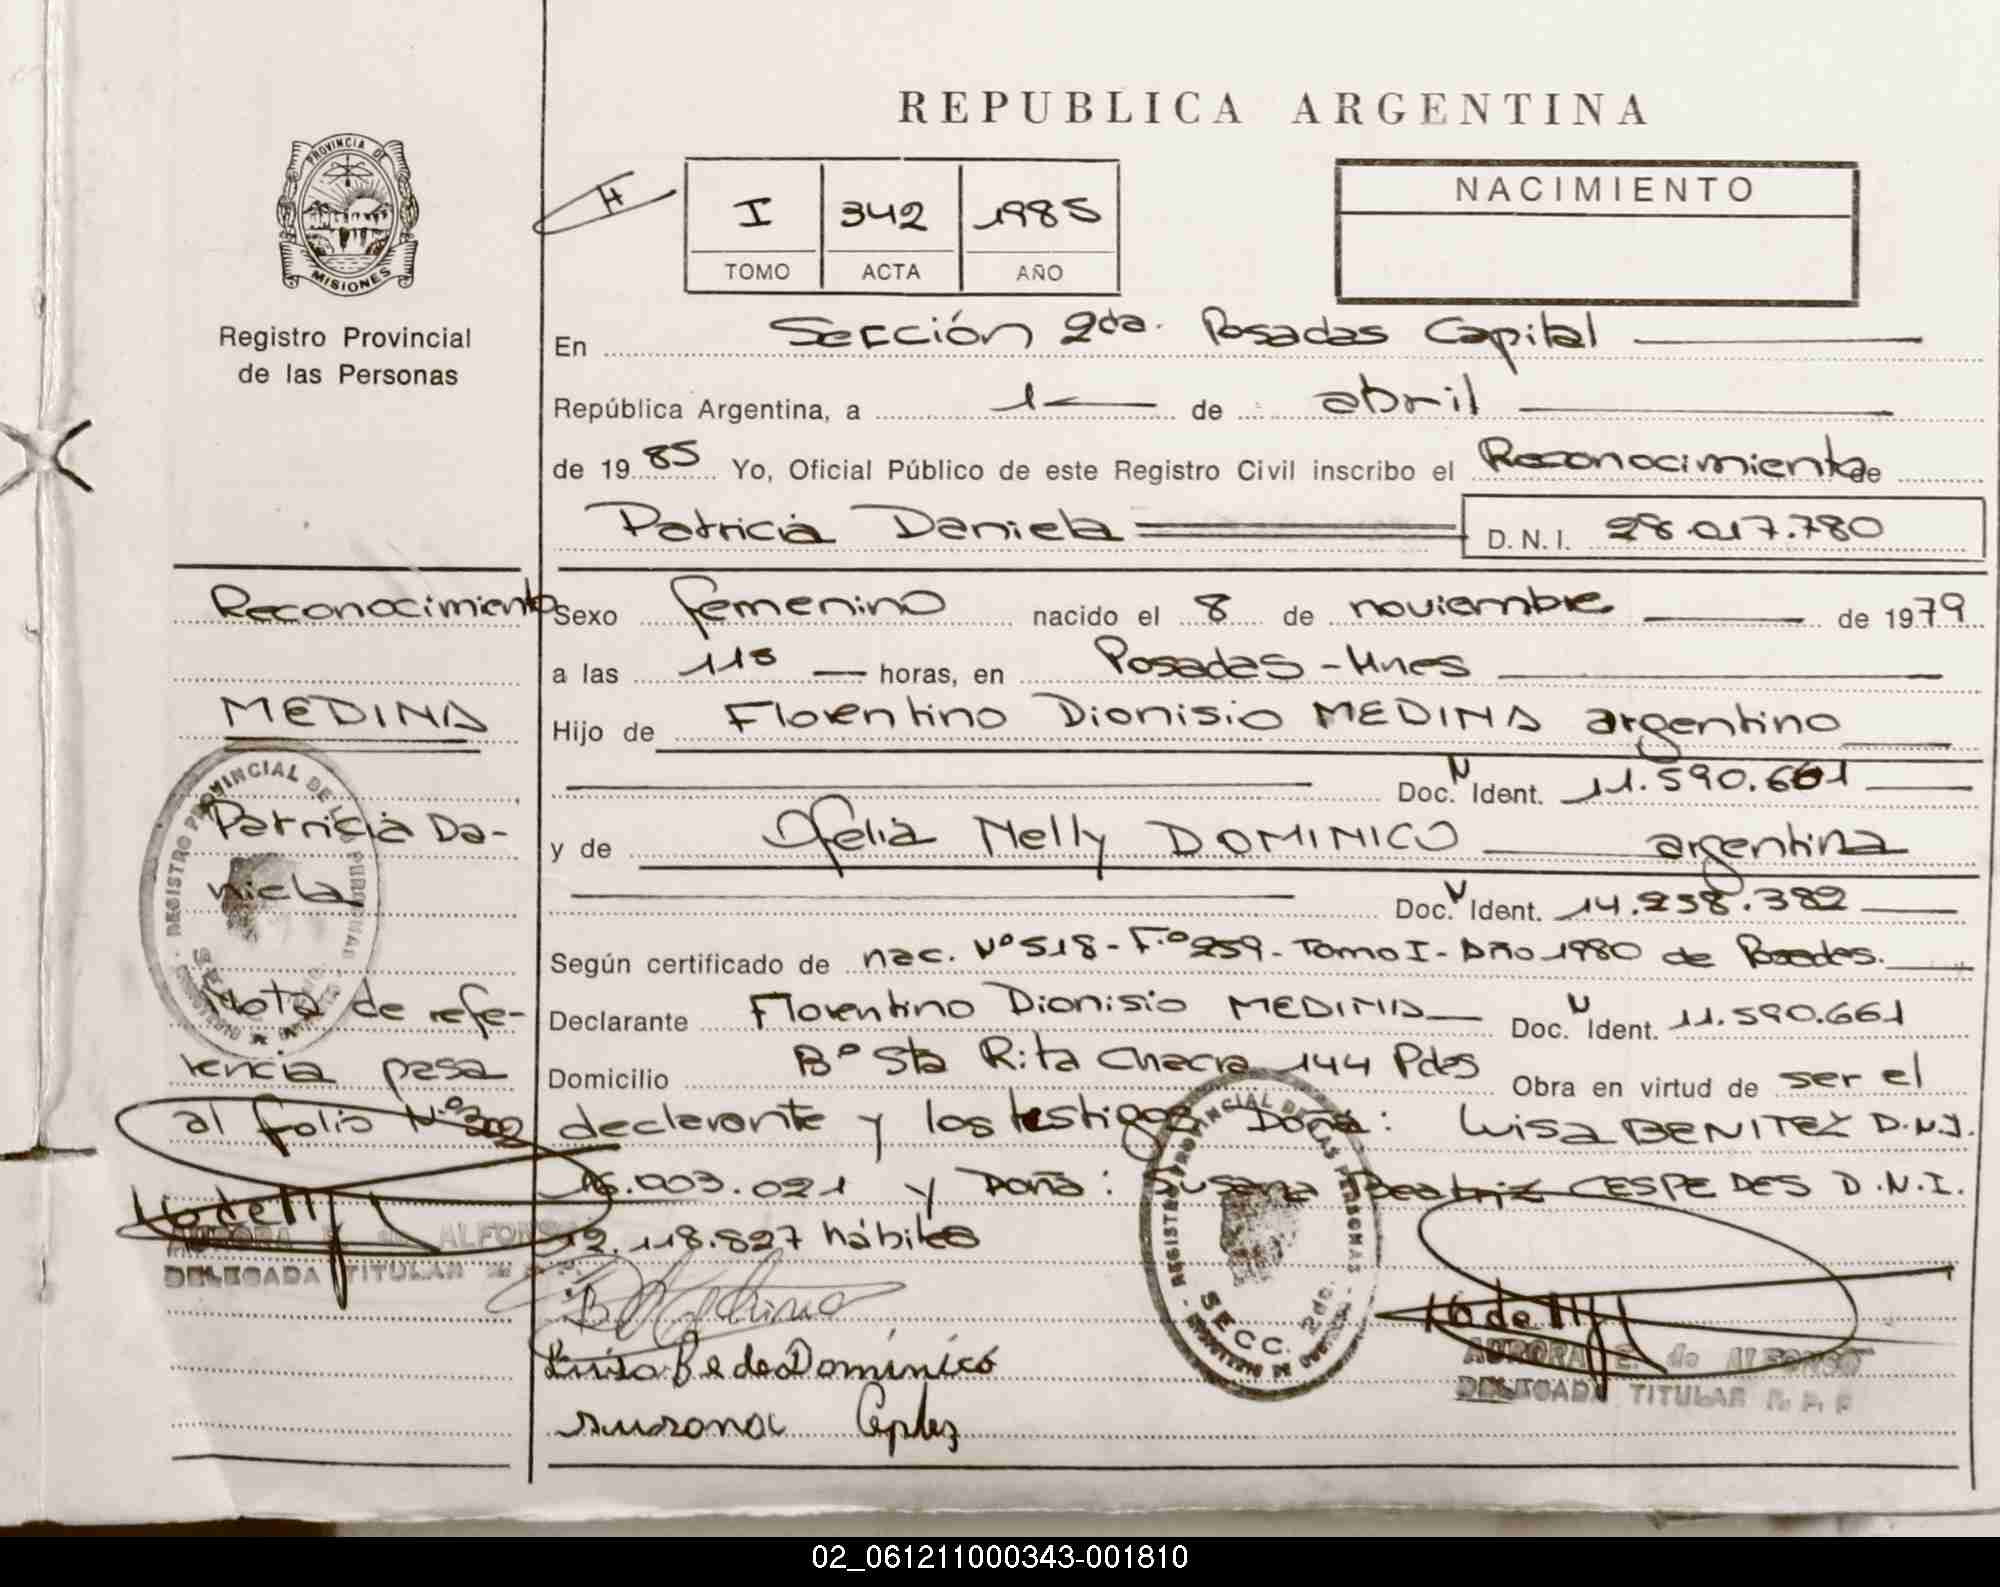 REPUBLICA ARGENTINA
PROVINCIA DE MISIONES
Registro Provincial
de las Personas
H
I 342 1985
TOMO ACTA AÑO
NACIMIENTO
En Sección 2da. Posadas Capital
República Argentina, a 1 de abril
de 1985 Yo, Oficial Público de este Registro Civil inscribo el Reconocimiento de
Patricia Daniela D.N.I. 28.017.780
Sexo femenino nacido el 8 de noviembre de 1979
a las horas, en Posadas - Mnes
Hijo de Florentino Dionisio MEDINA argentino
Doc. N Ident. 11.590.661
y de Ofelia Nelly DOMINICO argentina
Doc. N Ident. 14.258.382
Según certificado de nac. Nº 518 - F.º 259 - Tomo I - Año 1980 de Posadas.
Declarante Florentino Dionisio MEDINA Doc. N Ident. 11.590.661
Domicilio Bº Sta Rita Chacra 144 Pdas Obra en virtud de ser el
declarante y los testigos Doña: Luisa BENITEZ D.N.I.
16.003.021 y Doña: Susana Beatriz CESPEDES D.N.I.
12.118.827 hábiles
Luisa B. de Dominico
Susana
REGISTRO PROVINCIAL DE LAS PERSONAS
SECC. 2da.
AURORA E. de ALFONSO
DELEGADA TITULAR R. P. P.
Reconocimiento
MEDINA
Patricia Da-
niela
Nota de refe-
rencia pasa
al folio N.º 302
REGISTRO PROVINCIAL DE LAS PERSONAS
AURORA E. de ALFONSO
DELEGADA TITULAR
02_061211000343-001810